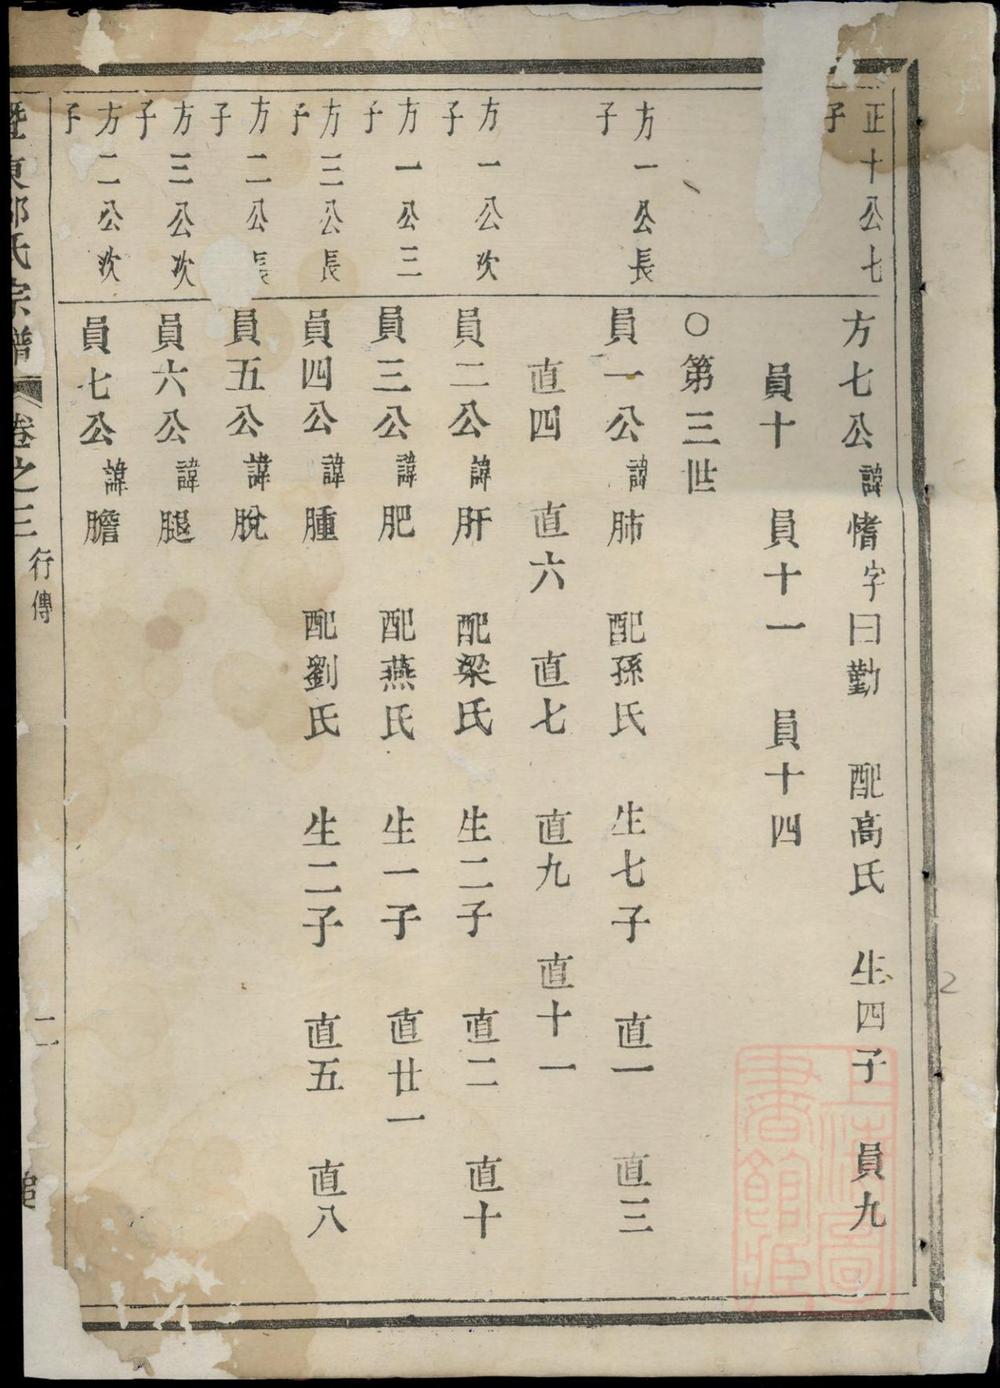 正十公七
子
方七公諱愭字曰勤 配高氏 生四子 員九
員十 員十一 員十四
○第三世
方一公長
子
員一公諱肺 配孫氏 生七子 直一 直三
直四 直六 直七 直九 直十一
方一公次
子
員二公諱肝 配梁氏 生二子 直二 直十
方一公三
子
員三公諱肥 配燕氏 生一子 直廿一
方三公長
子
員四公諱腫 配劉氏 生二子 直五 直八
方二公長
子
員五公諱脫
方三公次
子
員六公諱腿
方二公次
子
員七公諱膽
暨東郭氏宗譜 卷之三 行傳 二
上海圖書館藏
2